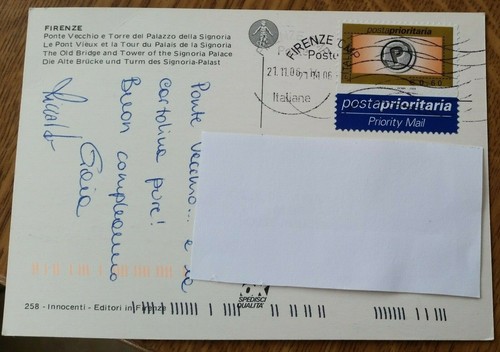 FIRENZE
Ponte Vecchio e Torre del Palazzo della Signoria
Le Pont Vieux et la Tour du Palais de la Signoria
The Old Bridge and Tower of the Signoria Palace
Die Alte Brücke und Turm des Signoria-Palast
Ponte Vecchio... e la
cartolina pure!
Buon compleanno
Gaia
FIRENZE CMP
Poste
21.11.06
Italiane
postaprioritaria
€ 0,60
postaprioritaria
Priority Mail
SPEDISCI
QUALITA'
258 - Innocenti - Editori in Firenze